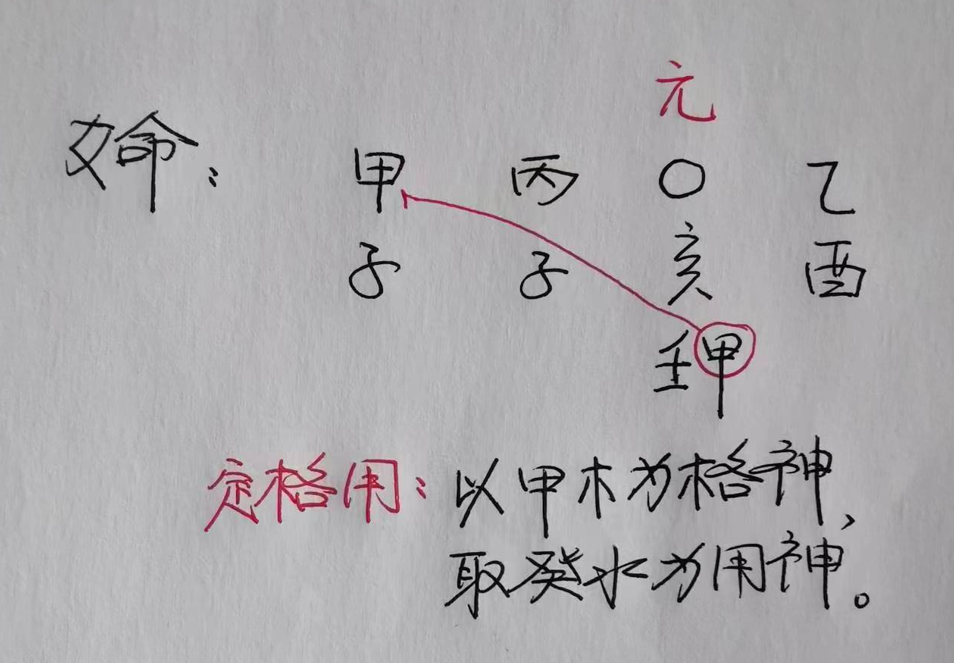 元
女命： 甲 丙 〇 乙
子 子 亥 酉
壬 甲
定格用：以甲木为格神、
取癸水为用神。